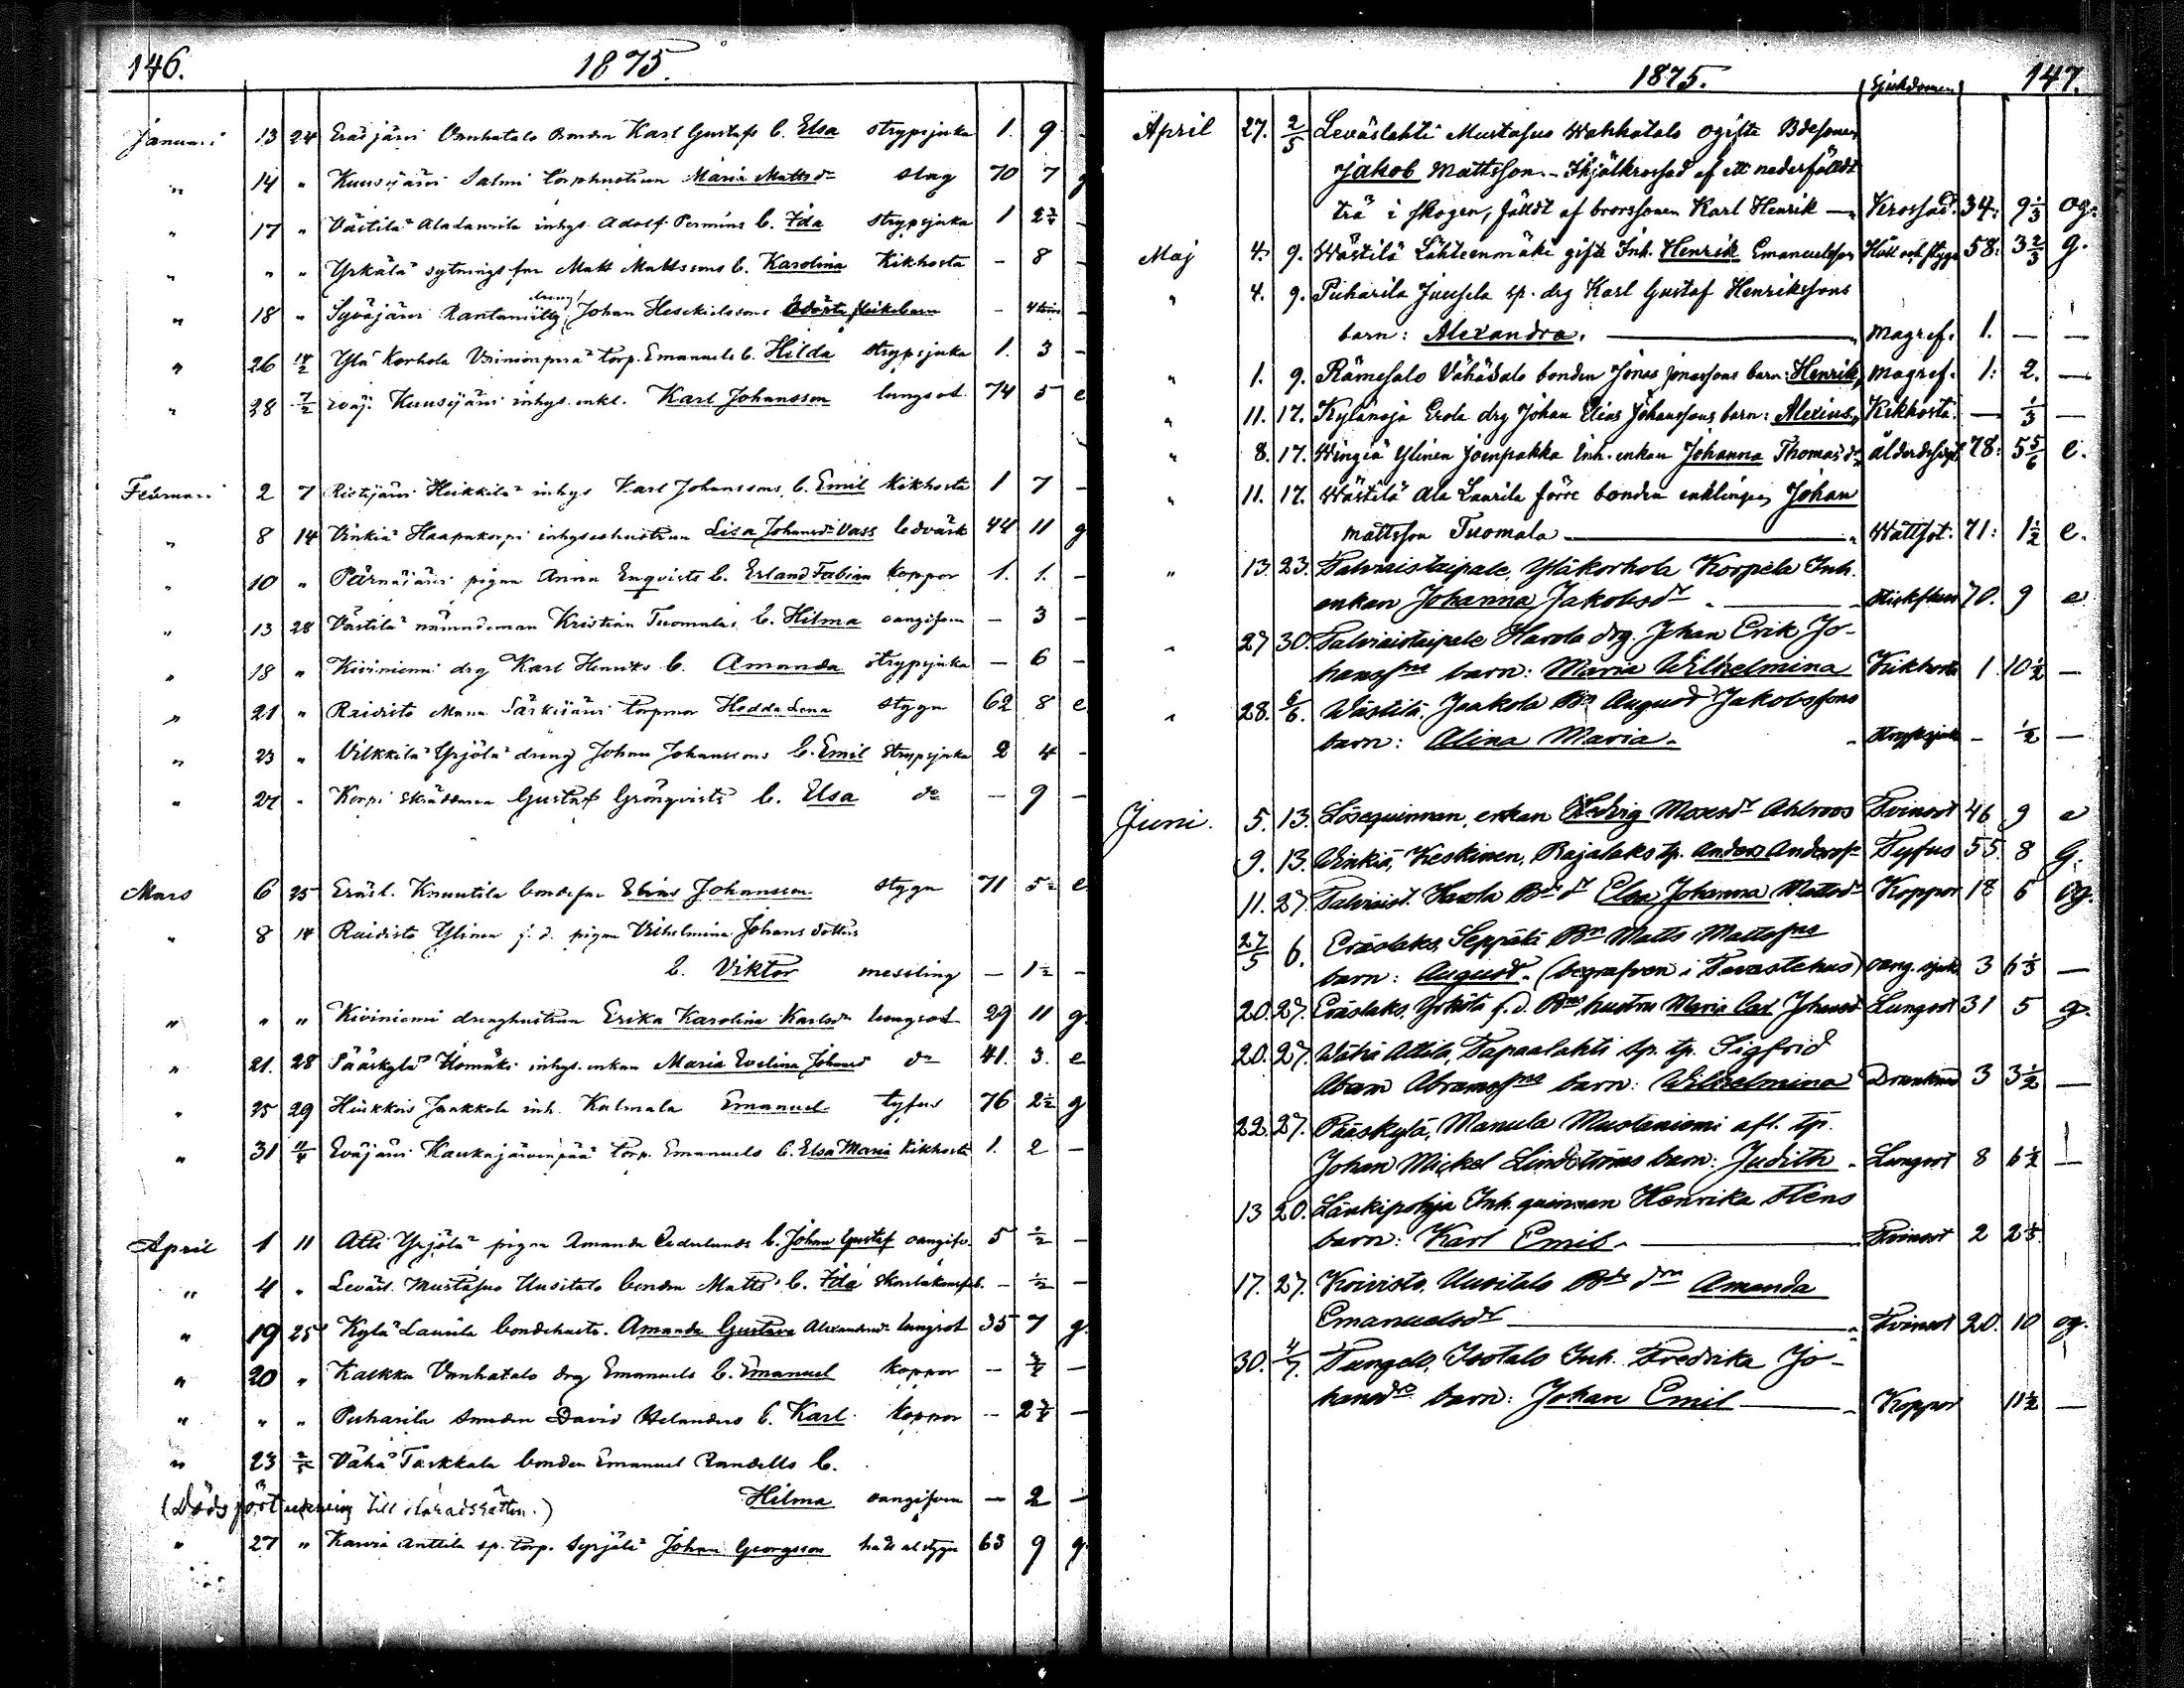 146. 1875.
Januari 13 24 Eräjärvi Vanhatalo Bonden Karl Gustafs b. Elsa strypsjuka 1. 9 -
" 14 " Kuusijärvi Salmi torphustrun Maria Mattsdr slag 70 7 g
" 17 " Västilä Alalaurila inhys. Adolf Permins b. Ida strypsjuka 1 2 3/4 -
" " " Yrkälä sytningsfar Matt Mattssons b. Karolina Kikhosta - 8 -
dreng
" 18 " Syväjärvi Rantamylly Johan Hesekielssons flickebarn - 4 tim -
" 26 14/2 Ylä Korhola torp. Emanuels b. Hilda strypsjuka 1. 3 -
" 28 7/2 Kuusijärvi inhys. enkl. Karl Johansson lungsot 74 5 e
Februari 2 7 Ristijärvi Heikkilä inhys Karl Johanssons b. Emil Kikhosta 1 7 -
" 8 14 Vinkiä Haapakorpi inhyseshustrun Lisa Johansdr Vass ledvärk 44 11 g
" 10 " Pärnäjärvi pigan Anna Enqvists b. Erland Fabian koppor 1. 1. -
" 13 28 Västilä nämndeman Kristian Tuomalas b. Hilma oangifven - 3 -
" 18 " Kiviniemi drg Karl Henriks b. Amanda strypsjuka - 6 -
" 21 " Raidisto Särkijärvi torpmor Hedda Lena stygn 62 8 e
" 23 " Vilkkilä Yrjölä dreng Johan Johanssons b. Emil strypsjuka 2 4 -
" 27 " Korpi skräddaren Gustaf Grönqvists b. Elsa do - 9 -
Mars 6 25 Eräsl. Knuutila bondefar Elias Johansson stygn 71 5 1/2 e
" 8 14 Raidisto Ylinen f.d. pigan Vilhelmina Johansdotters
b. Viktor messling - 1 1/2 -
" " " Kiviniemi drenghustrun Erika Karolina Karlsdr lungsot 29 11 g.
" 21. 28 Pääskylä Isomäki inhys. enkan Maria Evelina Johansd do 41. 3. e
" 25 29 Jaakkola inh. Kulmala Emanuel tyfus 76 2 1/2 g
" 31 11/4 Eväjärvi Kaukajärvenpää torp. Emanuels b. Elsa Maria Kikhosta 1. 2 -
April 1 11 Atti Yrjölä pigan Amanda Cederlunds b. Johan Gustaf oangifv. 5 1/2 -
" 4 " Leväsl. Mustajus Uusitalo bonden Matts b. Ida Skarlakansfeb. - 1/2 -
" 19 25 Kylä Laurila bondehustr. Amanda Gustava Alexandersdr lungsot 35 7 g.
" 20 " Kaskka Vanhatalo drg Emanuels b. Emanuel koppor - 3/4 -
" " " Puharila Smeden David Helanders b. Karl koppor - 2 3/4 -
" 23 2/5 Vähä Tarkkala bonden Emanuel Randells b.
Hilma oangifven - 2 -
(Döds till Häradsrätten.)
" 27 " Karvia Anttila sp. torp. Syrjälä Johan Georgsson håll o stygn 63 9 g.
1875. Sjukdomen 147.
April 27. 2/5 Leväslahti Mustajus Wahkatalo ogifte Bdesonen
Jakob Mattsson. - Ihjälkrossad af ett nederfälldt
trä i skogen, fälldt af brorssonen Karl Henrik — Krossad. 34: 9 1/3 og.
Maj 4. 9. Wästilä Lähteenmäki gifte Inh. Henrik Emanuelsson Håll och stygn 58: 3 2/3 g.
" 4. 9. Puharila Juusela sp. drg Karl Gustaf Henrikssons
barn: Alexandra. — magref. 1. — —
" 1. 9. Rämesalo Vähäsalo bonden Jonas Jonassons barn: Henrik, magref. 1: 2. —
" 11. 17. Kylänoja Erola drg Johan Elias Johanssons barn: Alexius, Kikhosta. — 1/3 —
" 8. 17. Wingiä Ylinen Joenpakka Inh. enkan Johanna Thomasdr ålderdsvagt 78: 5 5/6 e.
" 11. 17. Wästilä Ala Laurila förre bonden enklingen Johan
Mattsson Tuomala — Wattsot. 71: 1 1/2 e.
" 13. 23. Talviaistaipale, Yläkorhola Korpela Inh.
enkan Johanna Jakobsdr — 70. 9 e
" 27 30. Talviaistaipale Harola drg. Johan Erik Jo-
hanssons barn: Maria Wilhelmina Kikhosta 1 10 1/2 —
" 28. 6/6. Wästilä, Jaakola Bn August Jakobssons
barn: Alina Maria. Strypsjuk - 1/2 —
Juni. 5. 13. Lösequinnan, enkan Hedvig Maxsdr Ahlroos Tvinsot 46 9 e
9. 13. Winkiä, Keskinen, Rajalaks tp. Anders Anderss. Tyfus 55. 8 g.
11. 27. Talviaist. Harola Bdedr Elsa Johanna Mattsdr Koppor 18 6 og.
27/5 6. Eräslaks, Seppälä Bn Matts Mattssons
barn: August. (begrafven i Tavastehus) oang. sjukd 3 6 1/3 —
20. 27. Eräslaks, Yrkölä f.d. Bns hustru Maria Johansd Lungsot 31 5 g.
20. 27. Wähä Attila, Tapaalahti sp. tp. Sigfrid
Abram Abramssons barn: Wilhelmina Drunknad 3 3 1/2 —
22. 27. Pääskylä, Manula Mustaniemi afl. tp.
Johan Mickel Lindströms barn: Judith. Lungsot 8 6 1/2 —
13 20. Länkipohja Inh. quinnan Henrika Stens
barn: Karl Emil. — Tvinsot 2 2 1/3
17. 27. Koivisto, Uusitalo Bdedrn Amanda
Emanuelsdr — Tvinsot 20. 10 og.
30. 4/7. Tungelo, Isotalo Inh. Fredrika Jo-
hansdrs barn: Johan Emil — Koppor 11 1/2 —